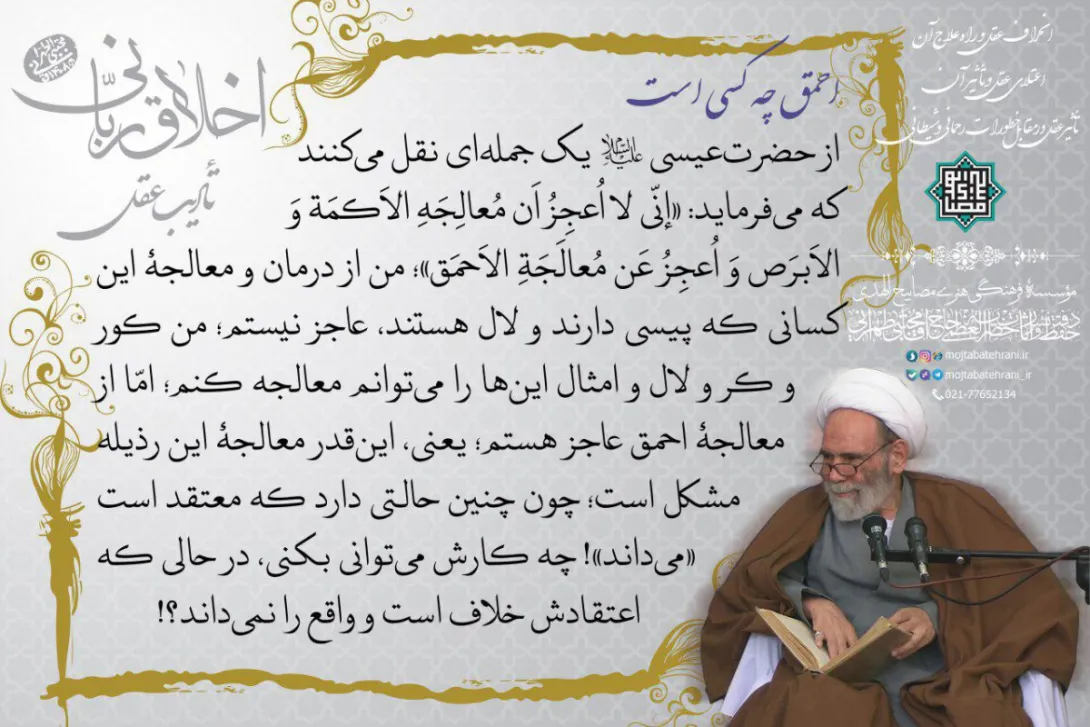 احمق چه کسی است
از حضرت‌عیسی علیه‌السلام یک جمله‌ای نقل می‌کنند
که می‌فرماید: «إنّی لا اُعجِزُ اَن مُعالِجَهِ الاَکمَة وَ
الاَبرَص وَ اُعجِزُ عَن مُعالَجَةِ الاَحمَق»؛ من از درمان و معالجهٔ این
کسانی که پیسی دارند و لال هستند، عاجز نیستم؛ من کور
و کر و لال و امثال این‌ها را می‌توانم معالجه کنم؛ امّا از
معالجهٔ احمق عاجز هستم؛ یعنی، این‌قدر معالجهٔ این رذیله
مشکل است؛ چون چنین حالتی دارد که معتقد است
«می‌داند»! چه کارش می‌توانی بکنی، در حالی که
اعتقادش خلاف است و واقع را نمی‌داند؟!
اخلاق ربّانی
تأدیب عقل
انحراف عقل و راه علاج آن
اعتلای عقل و تأثیر آن
تأثیر عقل در مقابل خطورات رحمانی و شیطانی
مؤسسهٔ فرهنگی هنری مصابیح الهدی
mojtabatehrani.ir
mojtabatehrani_ir
021-77652134